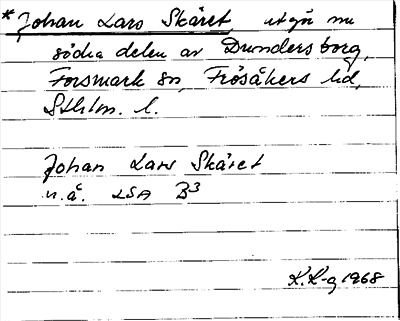 * Johan Lars Skäret utgör nu
södra delen av Dundersborg,
Forsmark sn, Frösåkers hd,
Sthlm. l.
Johan Lars Skäret
u.å. LSA B3
K.L-g 1968